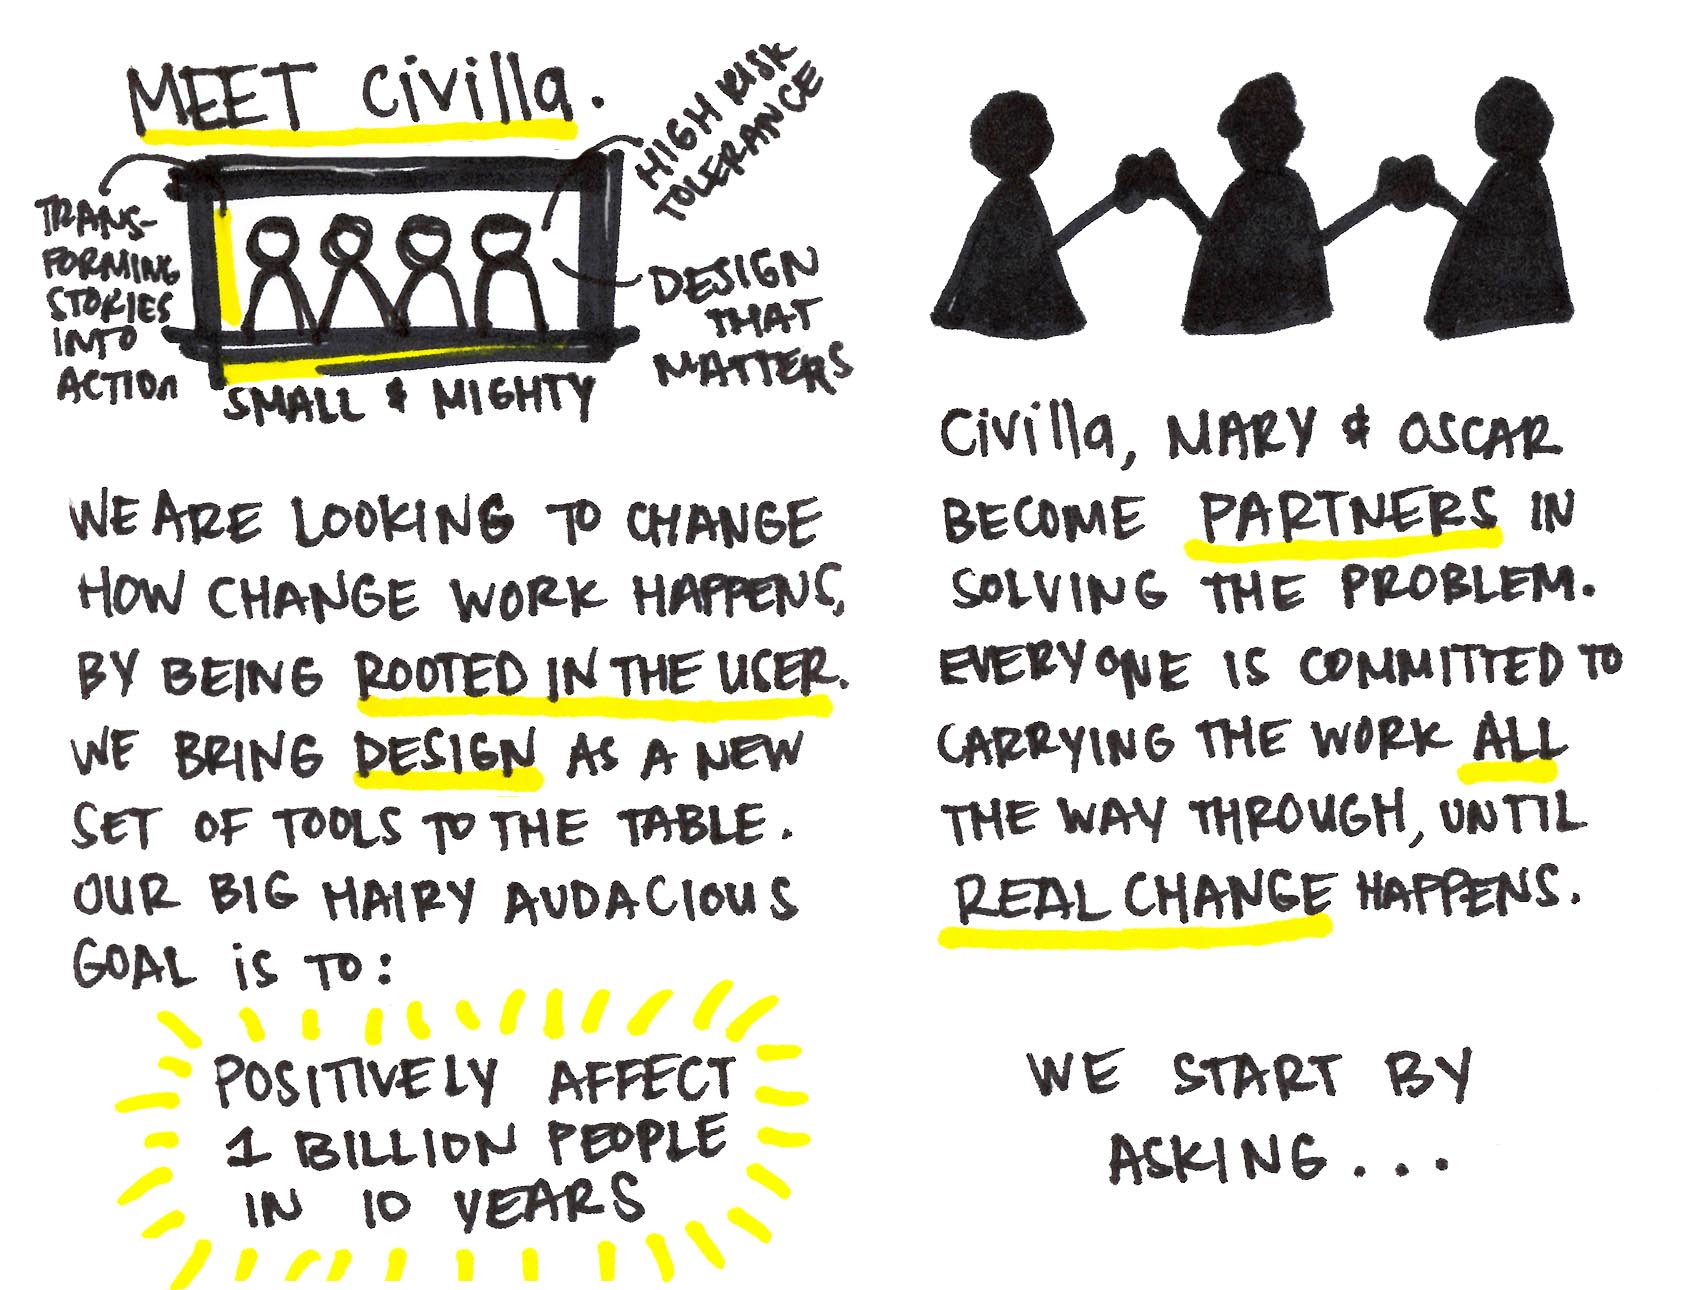 MEET Civilla.
TRANS-
FORMING
STORIES
INTO
ACTION
HIGH RISK
TOLERANCE
DESIGN
THAT
MATTERS
SMALL & MIGHTY
WE ARE LOOKING TO CHANGE
HOW CHANGE WORK HAPPENS,
BY BEING ROOTED IN THE USER.
WE BRING DESIGN AS A NEW
SET OF TOOLS TO THE TABLE.
OUR BIG HAIRY AUDACIOUS
GOAL iS TO:
POSITIVELY AFFECT
1 BILLION PEOPLE
IN 10 YEARS
Civilla, MARY & OSCAR
BECOME PARTNERS IN
SOLVING THE PROBLEM.
EVERYONE IS COMMITTED TO
CARRYING THE WORK ALL
THE WAY THROUGH, UNTIL
REAL CHANGE HAPPENS.
WE START BY
ASKING...